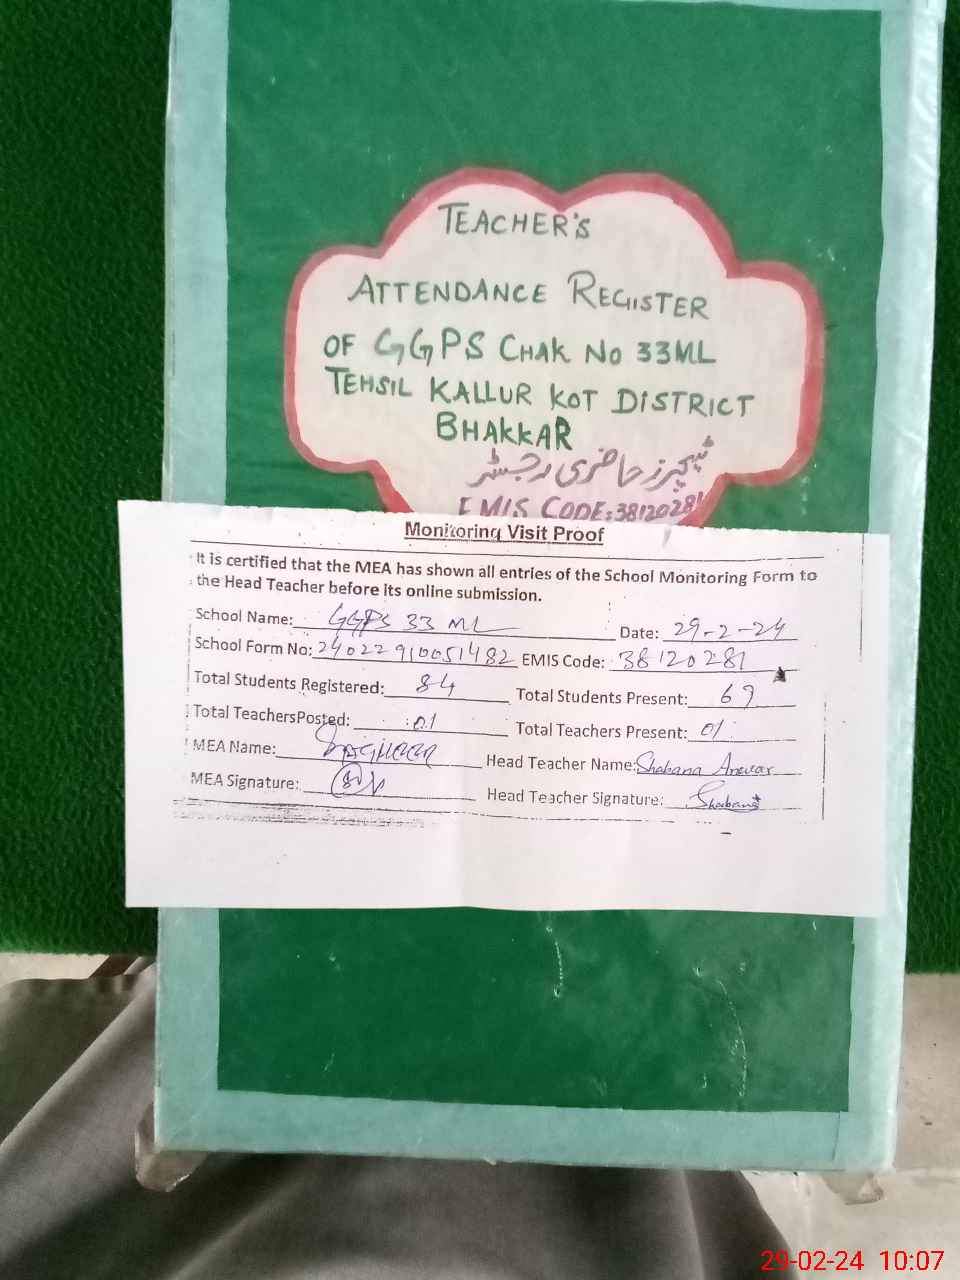 TEACHER'S
ATTENDANCE REGISTER
OF GGPS CHAK NO 33ML
TEHSIL KALLUR KOT DISTRICT
BHAKKAR
ٹیچرز حاضری رجسٹر
EMIS CODE:38120281
Monitoring Visit Proof
It is certified that the MEA has shown all entries of the School Monitoring Form to
the Head Teacher before its online submission.
School Name: GGPS 33 ML Date: 29-2-24
School Form No: 24022910051482 EMIS Code: 38120281
Total Students Registered: 84 Total Students Present: 69
Total TeachersPosted: 01 Total Teachers Present: 01
MEA Name: Head Teacher Name: Shabana Anwar
MEA Signature: Head Teacher Signature: Shabana
29-02-24 10:07